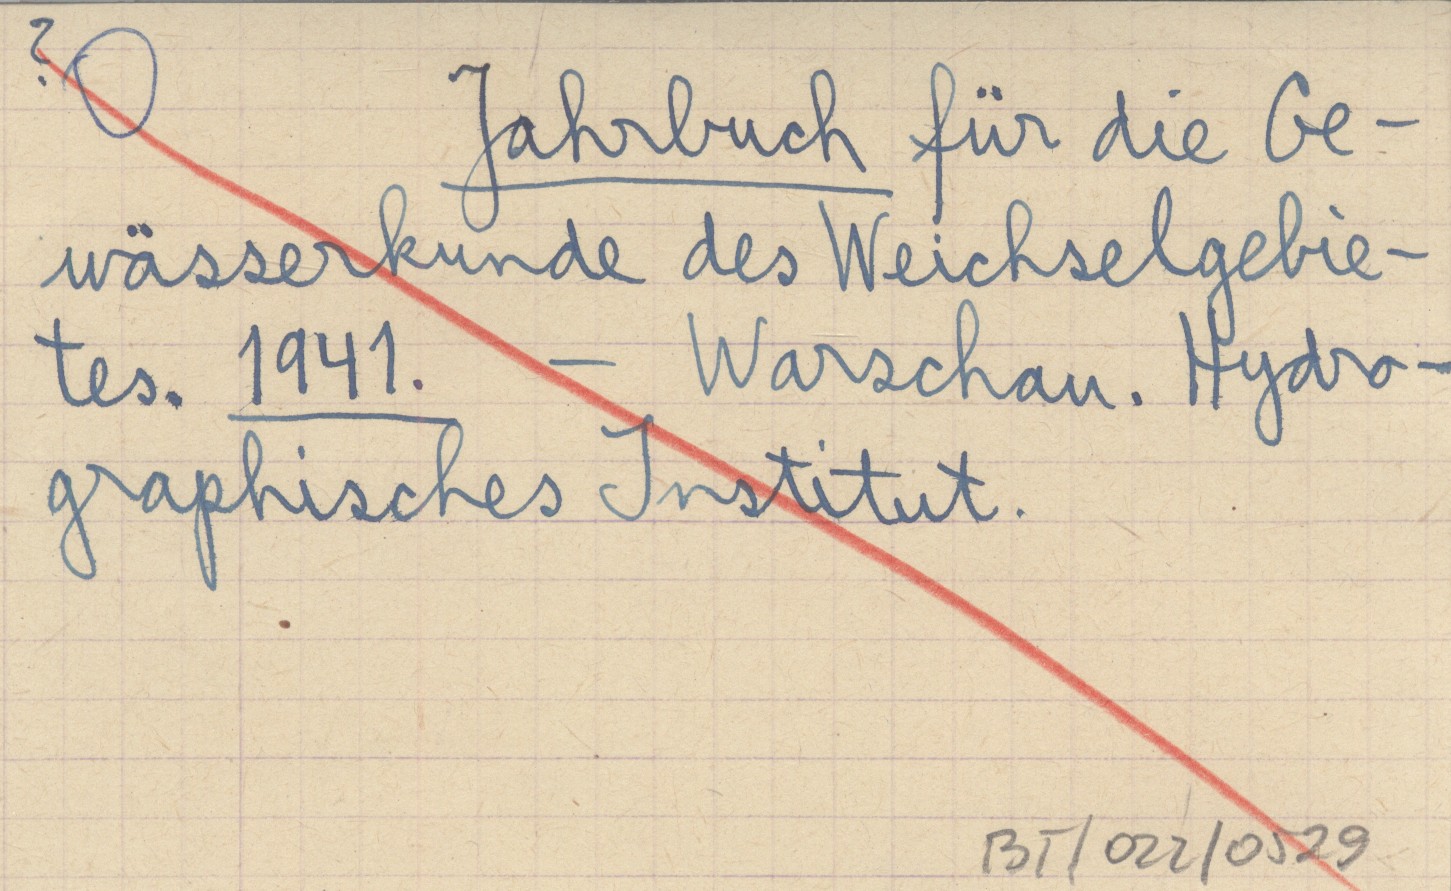 ?
Jahrbuch für die Ge-
wässerkunde des Weichselgebie-
tes. 1941. — Warschau. Hydro-
graphisches Institut.
BT/022/0529